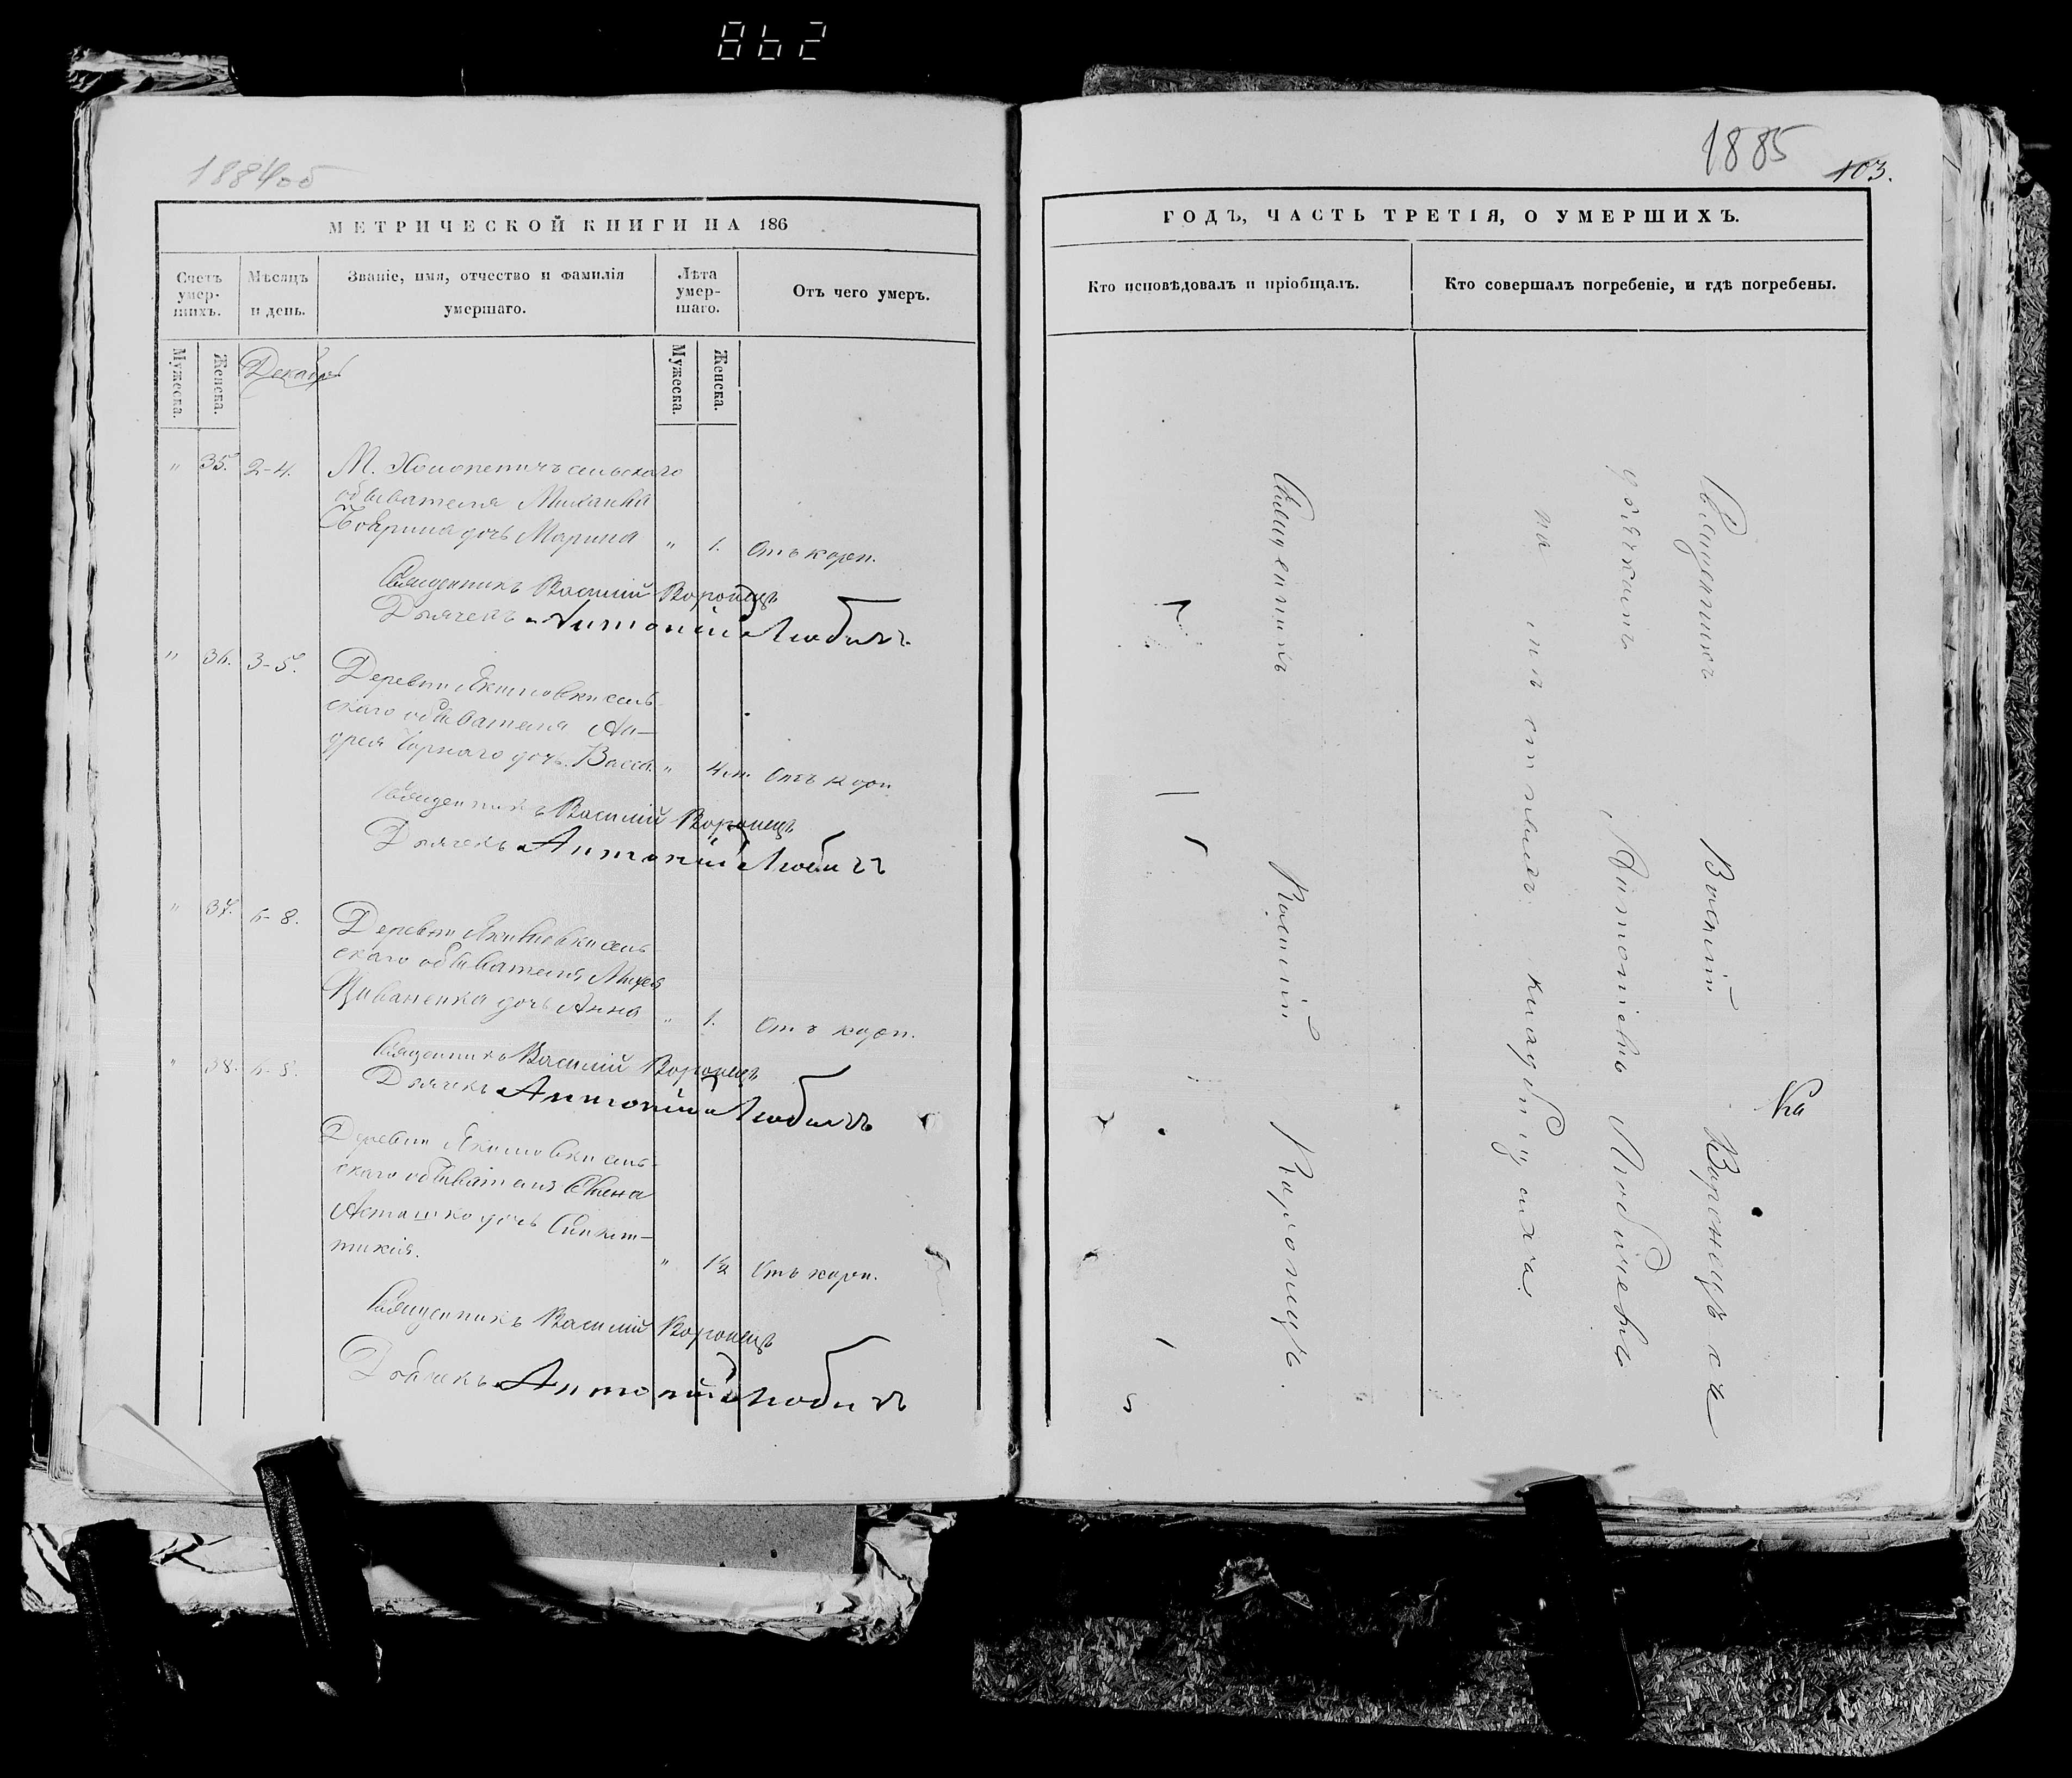 862
1884об
МЕТРИЧЕСКОЙ КНИГИ НА 186
Счетъ умер-шихъ.
Мѣсяцъ и день.
Званіе, имя, отчество и фамилія умершаго.
Лѣта умер-шаго.
Отъ чего умеръ.
Мужеска.
Женска.
Декабрь
Мужеска.
Женска.
" 35. 2-4. М. сельскаго
обывателя Михаила
дочь Марина " 1. Отъ кори.
Священникъ Василій Воронецъ
Дьячекъ Антоній Любичъ
" 36. 3-5. Деревни Якимовки сель-
скаго обывателя Ан-
дрея Чорнаго дочь Васса " 4 м. Отъ кори
Священникъ Василій Воронецъ
Дьячекъ Антоній Любичъ
" 37. 6-8. Деревни Якимовки сель-
скаго обывателя
дочь Анна " 1. Отъ кори.
Священникъ Василій Воронецъ
Дьячекъ Антоній Любичъ
" 38. 6-8.
Деревни Якимовки сель-
скаго обывателя
Асташко дочь Синкли-
тикія. " 1½ Отъ кори.
Священникъ Василій Воронецъ
Дьячекъ Антоній Любичъ
1885
103.
ГОДЪ, ЧАСТЬ ТРЕТІЯ, О УМЕРШИХЪ.
Кто исповѣдовалъ и пріобщалъ.
Кто совершалъ погребеніе, и гдѣ погребены.
Священникъ Василій Воронецъ.
Священникъ Василій Воронецъ съ
дьячкомъ Антоніемъ Любичемъ
на мѣстномъ кладбищѣ